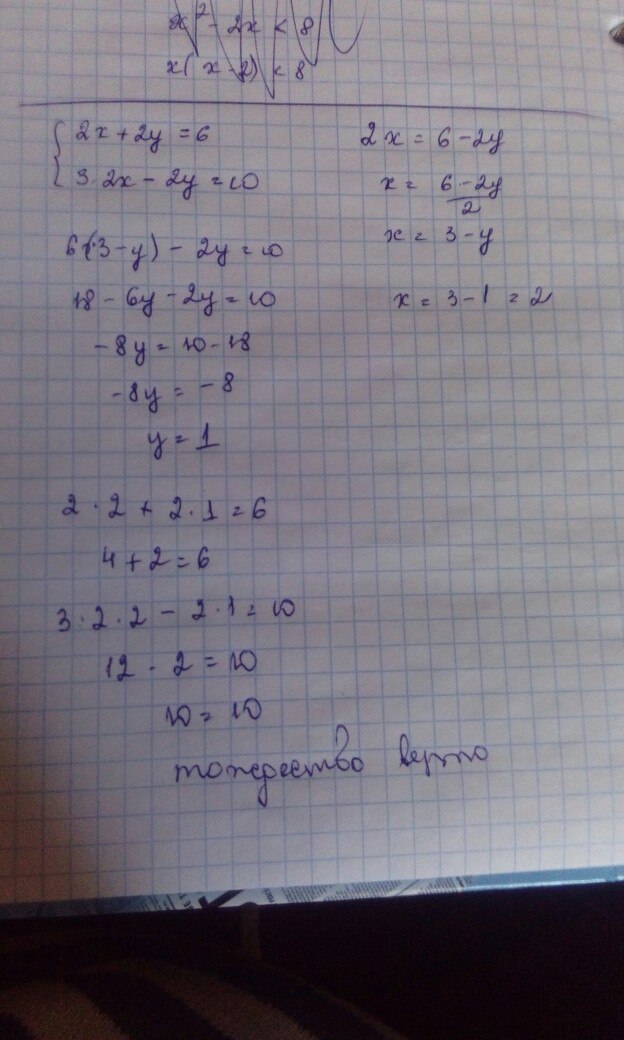 x² - 2x < 8
x(x-2) < 8
{ 2x + 2y = 6
3·2x - 2y = 10
2x = 6 - 2y
x = (6 - 2y)/2
x = 3 - y
x = 3 - 1 = 2
6(3 - y) - 2y = 10
18 - 6y - 2y = 10
-8y = 10 - 18
-8y = -8
y = 1
2 · 2 + 2 · 1 = 6
4 + 2 = 6
3 · 2 · 2 - 2 · 1 = 10
12 - 2 = 10
10 = 10
тождество верно